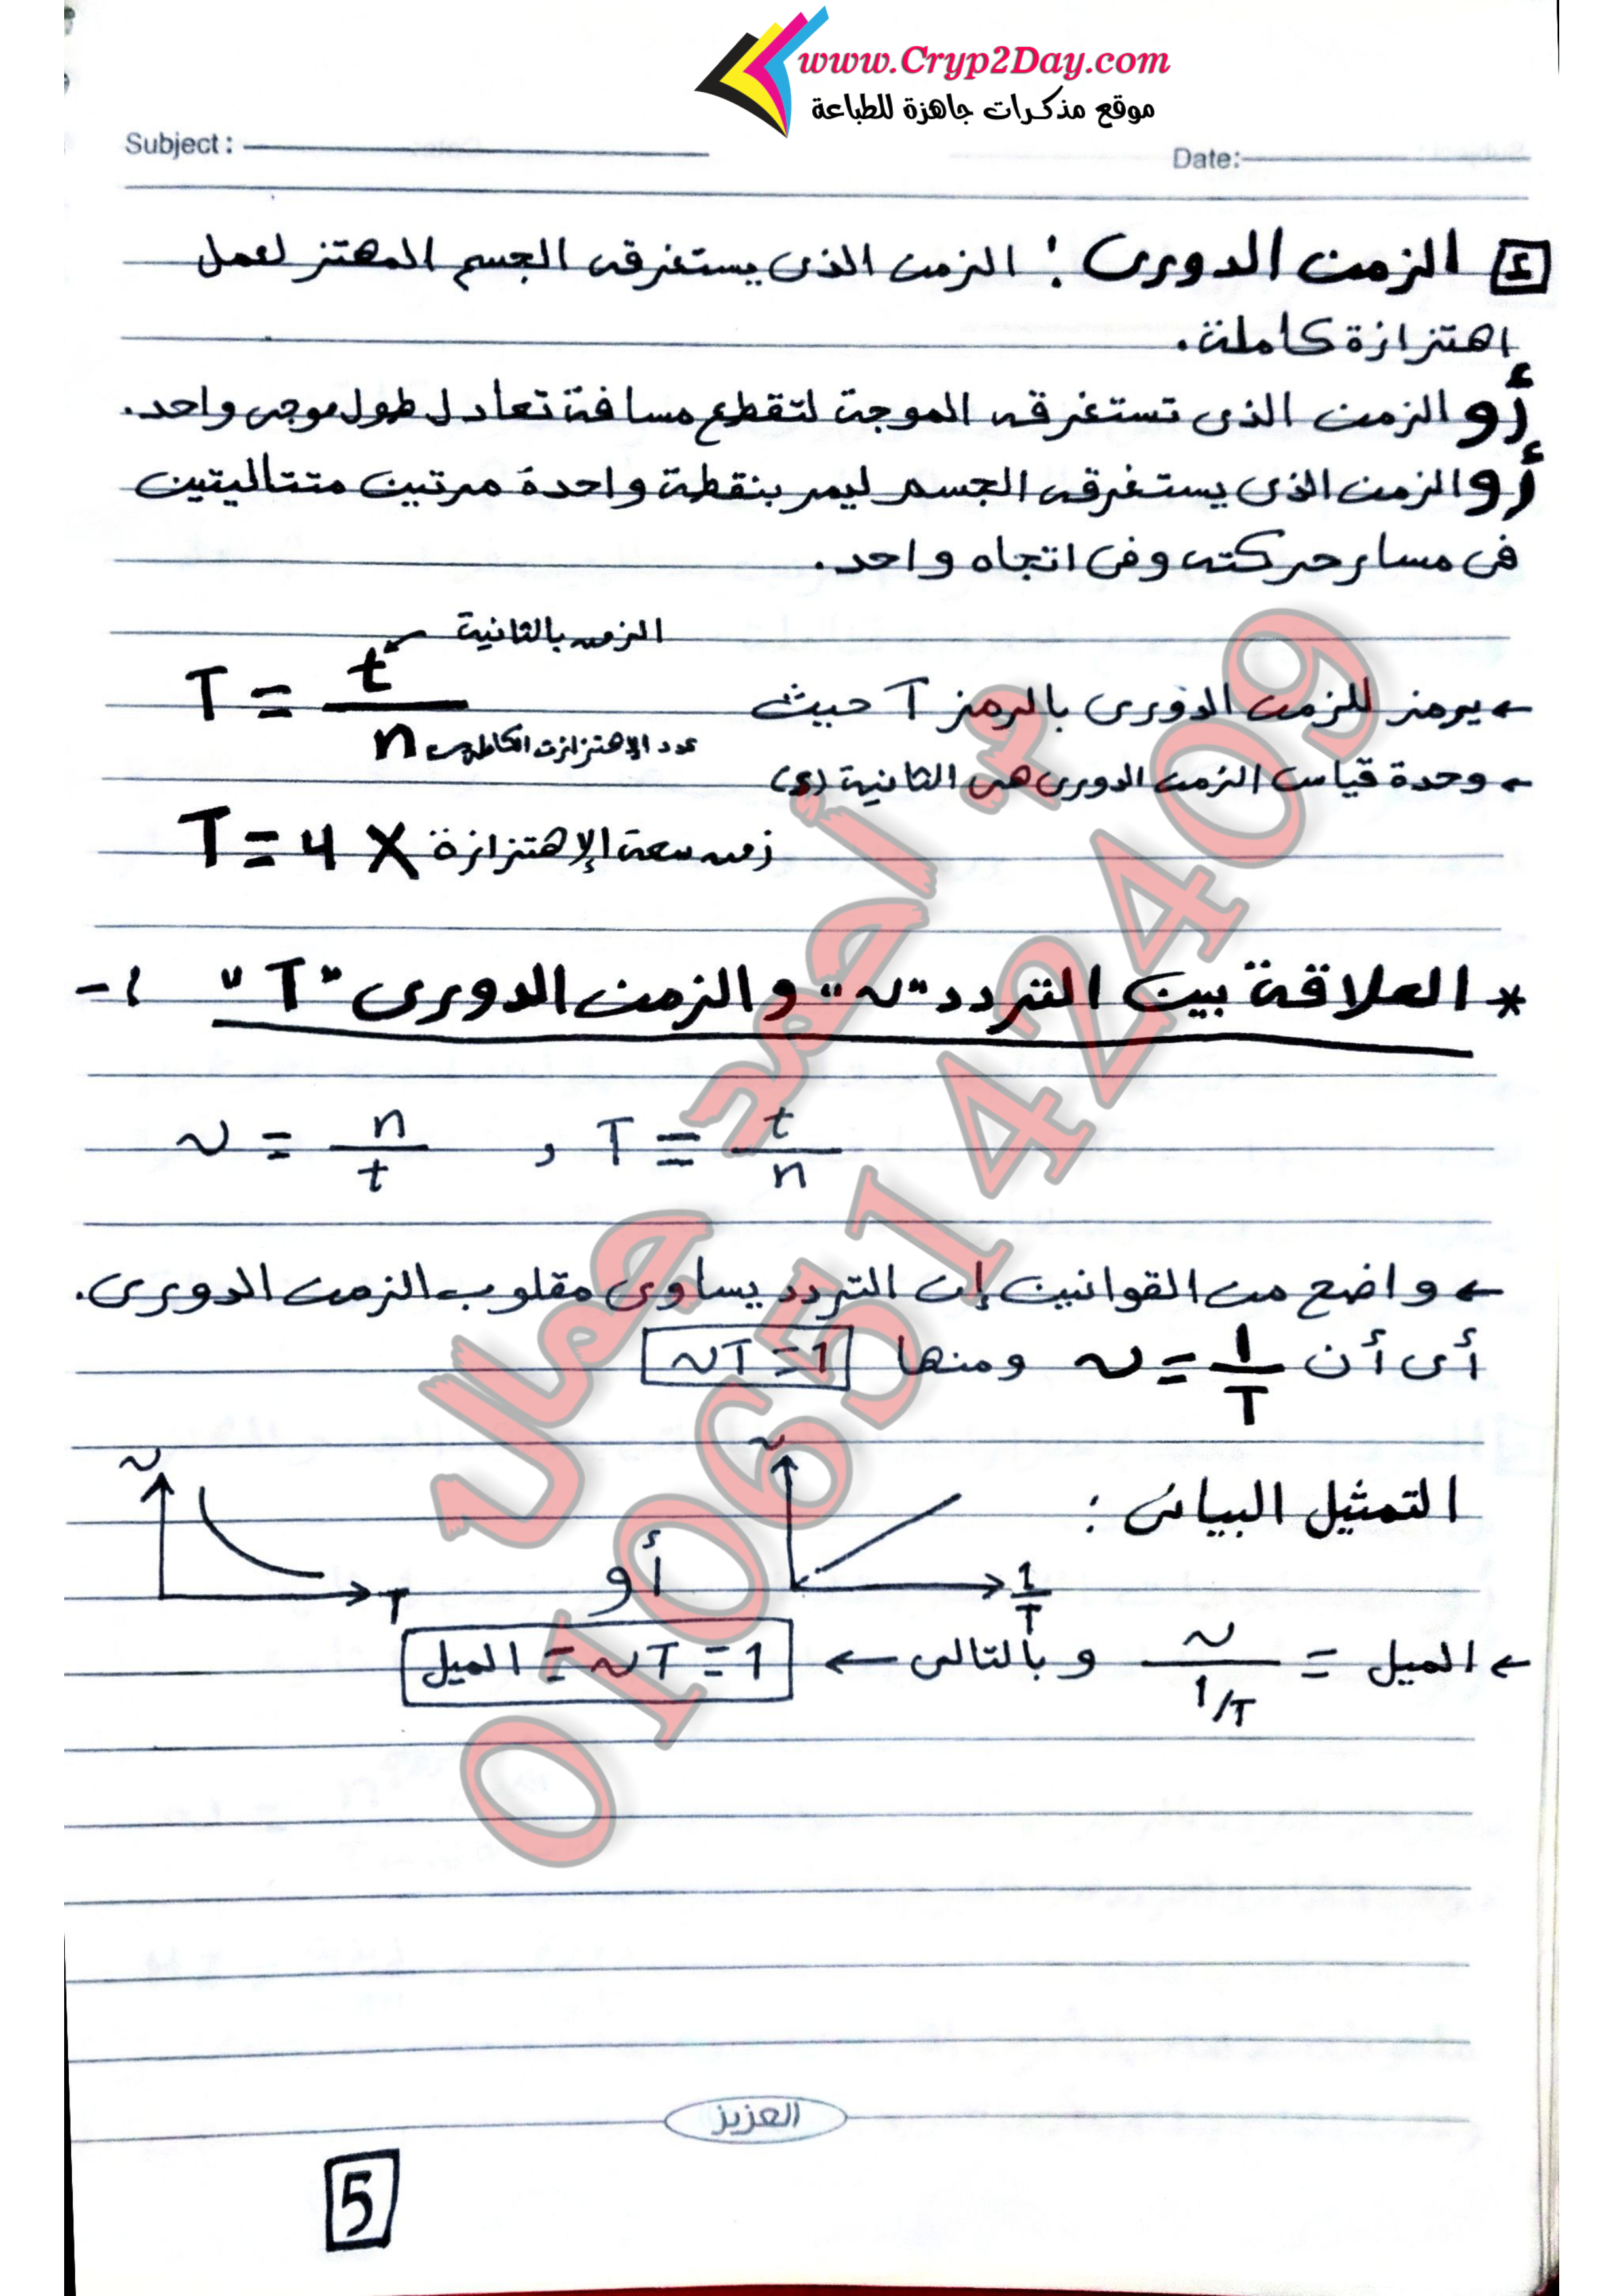 www.Cryp2Day.com
موقع مذكرات جاهزة للطباعة
Subject :
Date:
٤ الزمن الدورى : الزمن الذى يستغرقه الجسم المهتز لعمل
اهتزازة كاملة.
أو الزمن الذى تستغرقه الموجة لتقطع مسافة تعادل طول موجى واحد.
أو الزمن الذى يستغرقه الجسم ليمر بنقطة واحدة مرتين متتاليتين
فى مسار حركته وفى اتجاه واحد.
← يرمز للزمن الدورى بالرمز T حيث
T = t / n
الزمن بالثانية
عدد الإهتزازت الكاملة
← وحدة قياس الزمن الدورى هى الثانية
T = 4 X زمن سعة الإهتزازة
* العلاقة بين التردد "ν" والزمن الدورى "T" :-
ν = n / t , T = t / n
← واضح من القوانين إن التردد يساوى مقلوب الزمن الدورى.
أى أن ν = 1 / T ومنها νT = 1
التمثيل البيانى :
ν
1 / T
أو
ν
T
← الميل = ν / 1/T وبالتالى ← الميل = νT = 1
العزيز
5
أ. أحمد جمال
01065142409